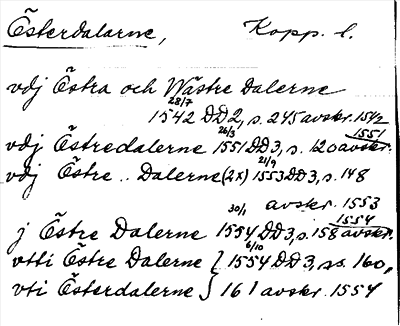 Österdalarne, Kopp. l.
vdj Östra och Wästre Dalerne
28/7
1542 DD2, s. 245 avskr. 1542
26/3 1551
vdj Östredalerne 1551 DD3, s. 120 avskr.
21/9
vdj Östre .. Dalerne (2x) 1553 DD3, s. 148
avskr. 1553
30/1 1554
j Östre Dalerne 1554 DD3, s. 158 avskr.
6/10
vtti Östre Dalerne } 1554 DD3, ss. 160,
vti Österdalerne } 161 avskr. 1554